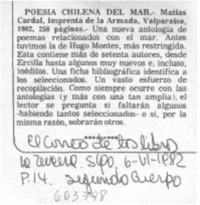 POESIA CHILENA DEL MAR.- Matías
Cardal, Imprenta de la Armada, Valparaíso,
1982, 258 páginas.- Una nueva antología de
poemas relacionados con el mar. Antes
tuvimos la de Hugo Montes, más restringida.
Esta contiene más de setenta autores, desde
Ercilla hasta algunos muy nuevos e, incluso,
inéditos. Una ficha bibliográfica identifica a
los seleccionados. Un vasto esfuerzo de
recopilación. Como siempre ocurre con las
antologías (y más con una tan amplia), el
lector se pregunta si faltarán algunos
-habiendo tantos seleccionados- o si, por la
misma razón, sobrarán otros.
El correo de los libros
La Tercera, Stgo, 6-VI-1982
P.14. Segundo Cuerpo
663748